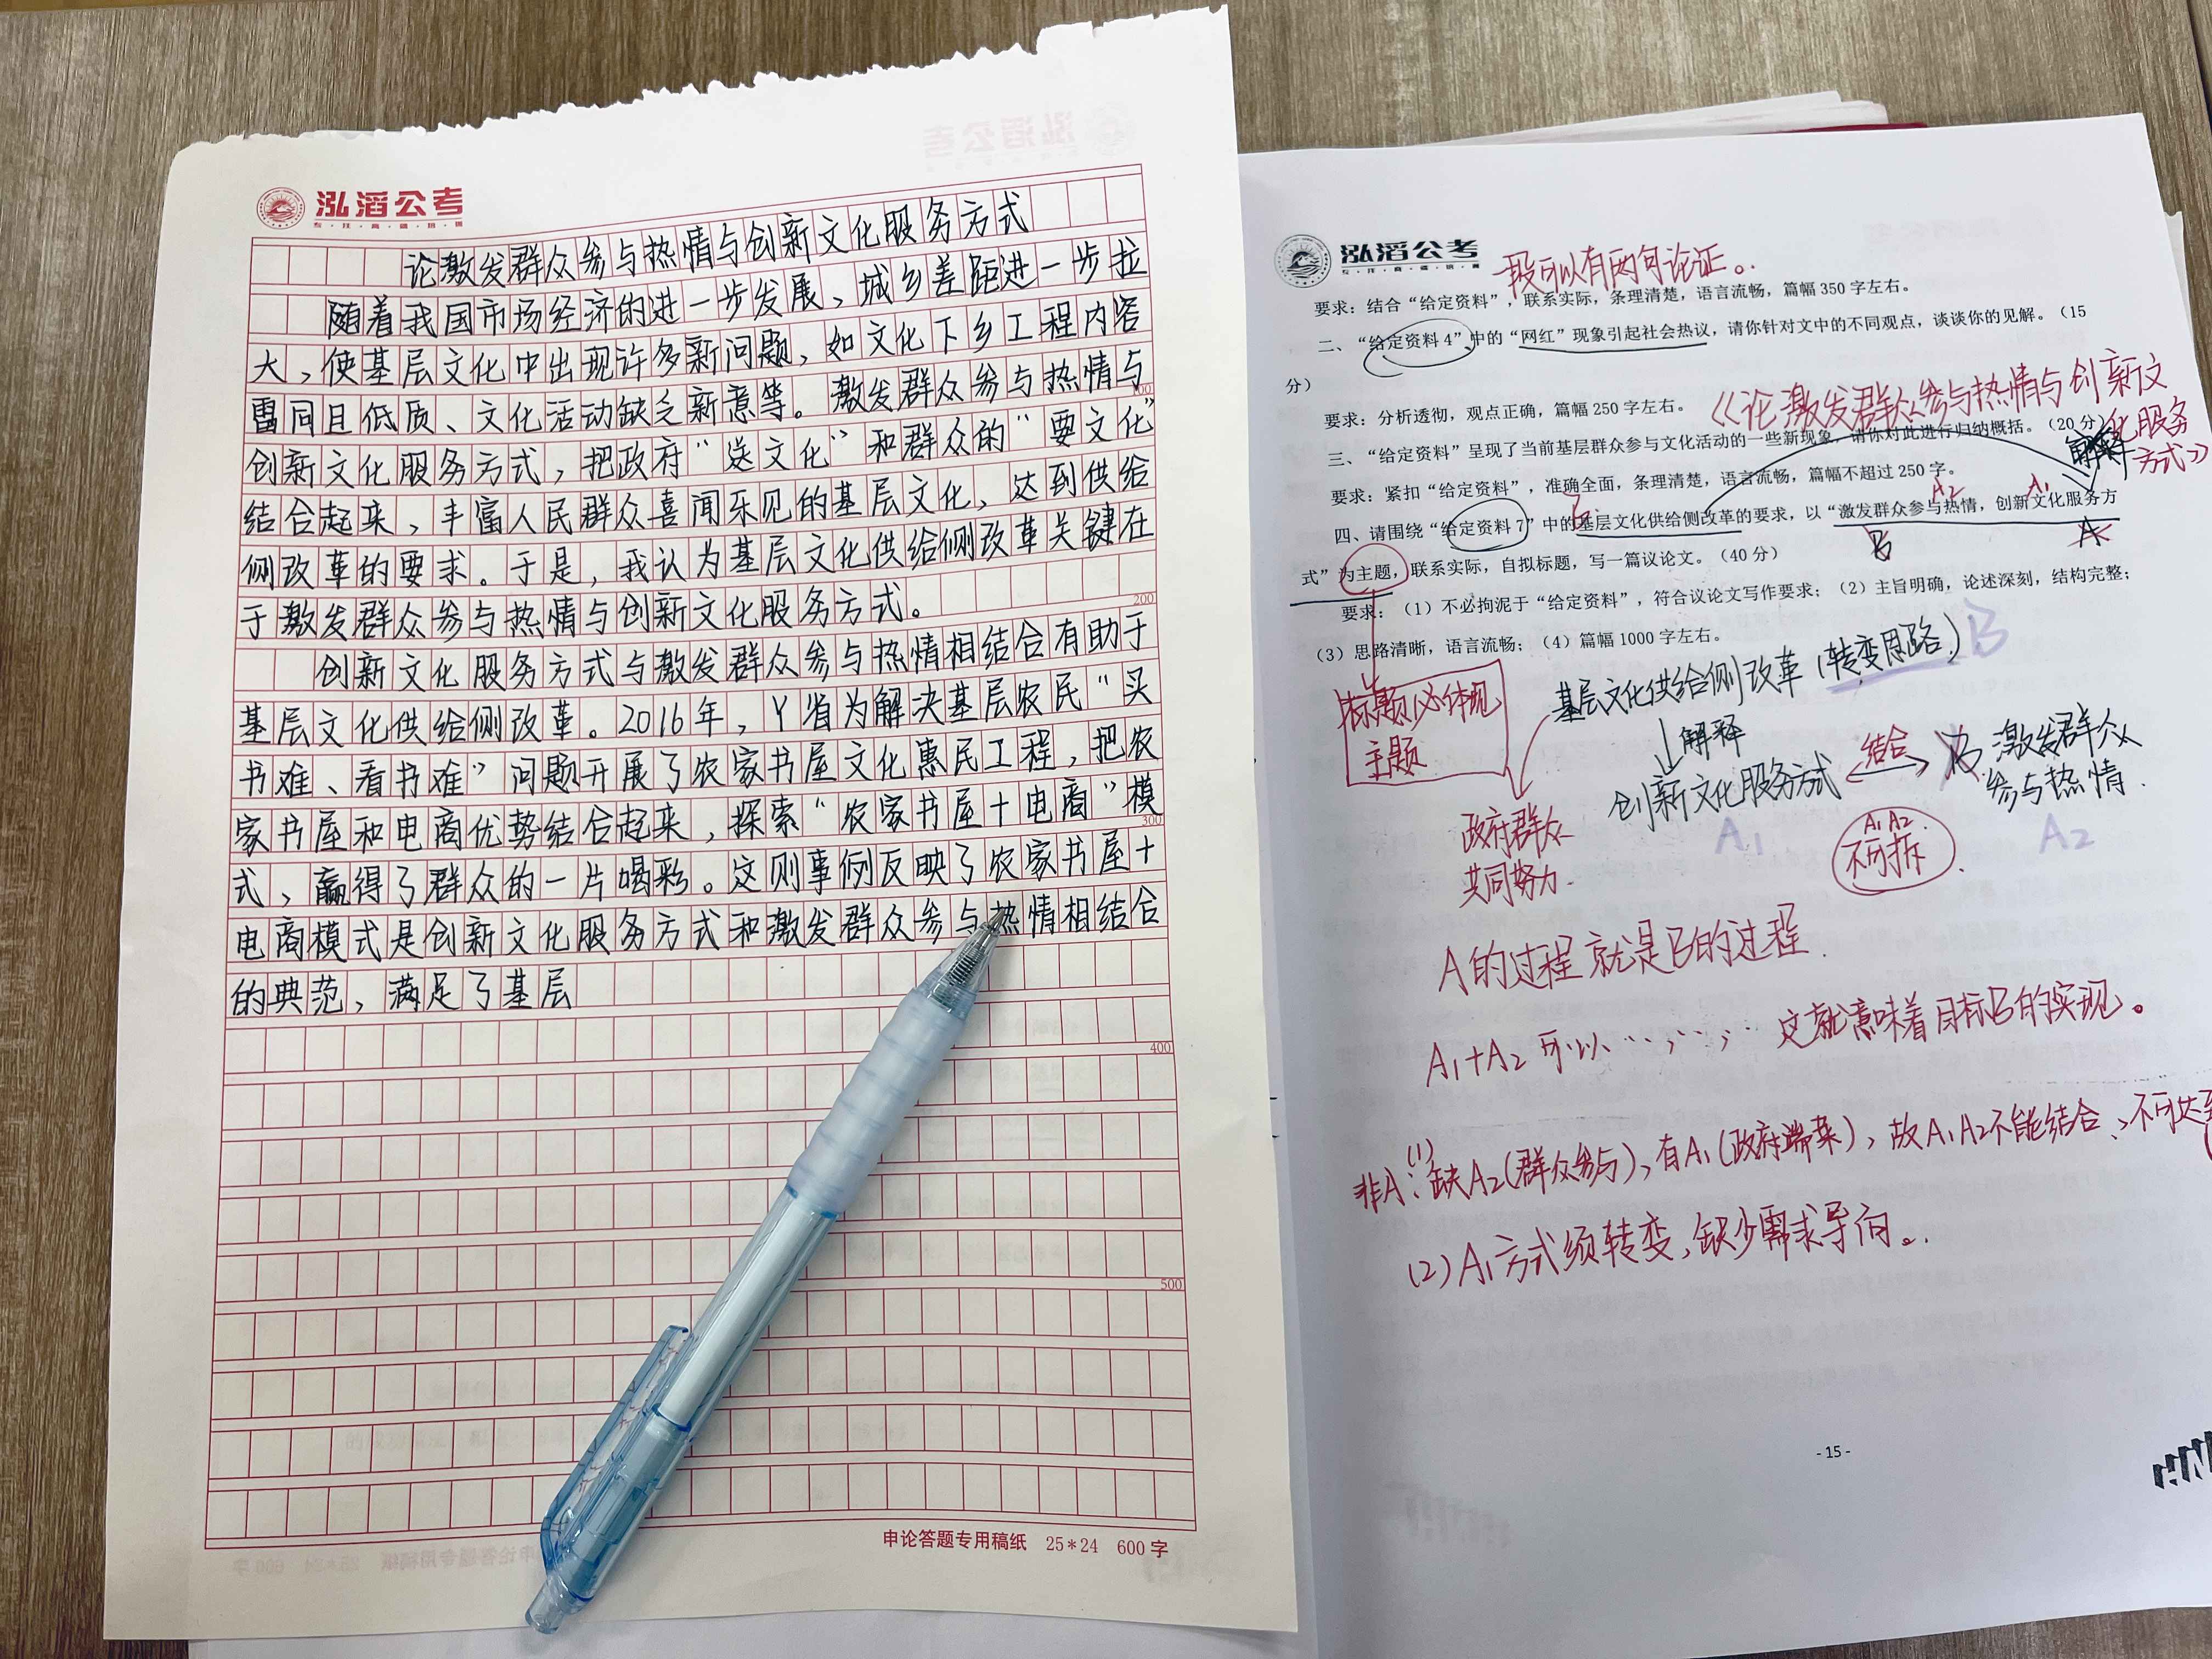 泓滔公考
论激发群众参与热情与创新文化服务方式
随着我国市场经济的进一步发展、城乡差距进一步拉
大,使基层文化中出现许多新问题,如文化下乡工程内容
雷同且低质、文化活动缺乏新意等。激发群众参与热情与
100
创新文化服务方式,把政府“送文化”和群众的“要文化”
结合起来,丰富人民群众喜闻乐见的基层文化,达到供给
侧改革的要求。于是,我认为基层文化供给侧改革关键在
于激发群众参与热情与创新文化服务方式。
200
创新文化服务方式与激发群众参与热情相结合有助于
基层文化供给侧改革。2016年,Y省为解决基层农民“买
书难、看书难”问题开展了农家书屋文化惠民工程,把农
家书屋和电商优势结合起来,探索“农家书屋+电商”模
300
式,赢得了群众的一片喝彩。这则事例反映了农家书屋+
电商模式是创新文化服务方式和激发群众参与热情相结合
的典范,满足了基层
400
500
申论答题专用稿纸 25*24 600字
泓滔公考
一段可以有两句论证。
要求:结合“给定资料”,联系实际,条理清楚,语言流畅,篇幅350字左右。
二、“给定资料4”中的“网红”现象引起社会热议,请你针对文中的不同观点,谈谈你的见解。(15
分)
要求:分析透彻,观点正确,篇幅250字左右。
《论激发群众参与热情与创新文
化服务
方式》
三、“给定资料”呈现了当前基层群众参与文化活动的一些新现象,请你对此进行归纳概括。(20分)
解释
要求:紧扣“给定资料”,准确全面,条理清楚,语言流畅,篇幅不超过250字。
B A2 A1
四、请围绕“给定资料7”中的基层文化供给侧改革的要求,以“激发群众参与热情,创新文化服务方
B A
式”为主题,联系实际,自拟标题,写一篇议论文。(40分)
要求:(1)不必拘泥于“给定资料”,符合议论文写作要求;(2)主旨明确,论述深刻,结构完整;
(3)思路清晰,语言流畅;(4)篇幅1000字左右。
标题必体现
主题
基层文化供给侧改革(转变思路)B
解释
创新文化服务方式
A1
结合
激发群众
参与热情.
A2
A1 A2
不可拆
政府群众
共同努力.
A的过程就是B的过程.
A1+A2 可以…;…;… 这就意味着目标B的实现。
非A:(1)缺A2(群众参与),有A1(政府端菜),故A1A2不能结合、不可达到
(2)A1方式须转变,缺少需求导向。
- 15 -